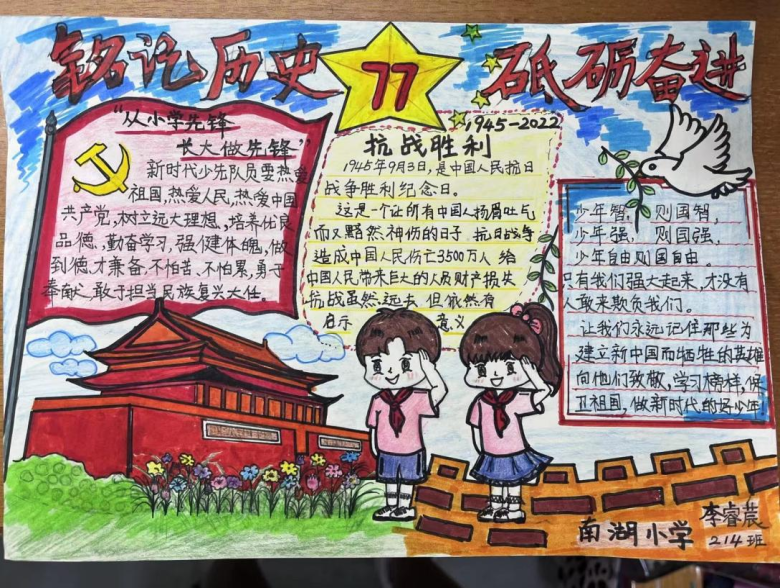 铭记历史 77 砥砺奋进
1945-2022
"从小学先锋
长大做先锋"
新时代少先队员要热爱
祖国,热爱人民,热爱中国
共产党,树立远大理想,培养优良
品德,勤奋学习,强健体魄,做
到德才兼备,不怕苦、不怕累,勇于
奉献、敢于担当民族复兴大任。
抗战胜利
1945年9月3日,是中国人民抗日
战争胜利纪念日。
这是一个让所有中国人扬眉吐气
而又黯然神伤的日子,抗日战争
造成中国人民伤亡3500万人 给
中国人民带来巨大的人员财产损失
抗战虽然远去 但依然有
启示 意义
少年智, 则国智,
少年强, 则国强,
少年自由则国自由。
只有我们强大起来,才没有
人敢来欺负我们。
让我们永远记住那些为
建立新中国而牺牲的英雄
向他们致敬,学习榜样,保
卫祖国,做新时代的好少年
南湖小学
李睿莀
214班